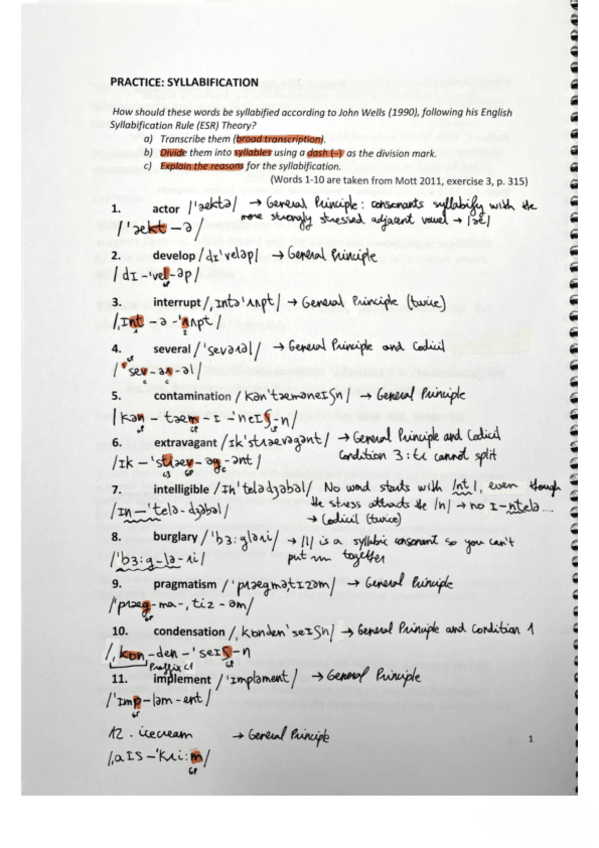 PRACTICE: SYLLABIFICATION
How should these words be syllabified according to John Wells (1990), following his English
Syllabification Rule (ESR) Theory?
a) Transcribe them (broad transcription).
b) Divide them into syllables using a dash (–) as the division mark.
c) Explain the reasons for the syllabification.
(Words 1-10 are taken from Mott 2011, exercise 3, p. 315)
1. actor /ˈæktə/ → General Principle: consonants syllabify with the
more strongly stressed adjacent vowel → /æ/
/ˈækt – ə/
2. develop /dɪˈveləp/ → General Principle
/dɪ – ˈvel – əp/
GP
3. interrupt /ˌɪntəˈɹʌpt/ → General Principle (twice)
/ˌɪnt – ə – ˈɹʌpt/
1 2
4. several /ˈsevəɹəl/ → General Principle and Codicil
/ˈsev – əɹ – əl/
5. contamination /kənˈtæməneɪʃn/ → General Principle
/kən – tæm – ɪ – ˈneɪʃ – n/
GP GP
6. extravagant /ɪkˈstɹævəgənt/ → General Principle and Codicil
Condition 3: tɹ cannot split
/ɪk – ˈstɹæv – əg – ənt/
7. intelligible /ɪnˈtelədʒəbəl/ No word starts with /nt/, even though
the stress attracts the /n/ → no ɪ – ntelə....
→ Codicil (twice)
/ɪn – ˈtelə – dʒəbəl/
8. burglary /ˈbɜːgləɹi/ → /l/ is a syllabic consonant so you can't
put together
/ˈbɜːg – lə – ɹi/
9. pragmatism /ˈpɹægməˌtɪzəm/ → General Principle
/ˈpɹæg – mə – ˌtɪz – əm/
GP
10. condensation /ˌkɒndenˈseɪʃn/ → General Principle and Condition 1
/ˌkɒn – den – ˈseɪʃ – n
Prefix c1 GP
11. implement /ˈɪmpləmənt/ → General Principle
/ˈɪmp – ləm – ənt/
GP
12. icecream → General Principle
/ˌaɪs – ˈkɹiːm/
GP
1